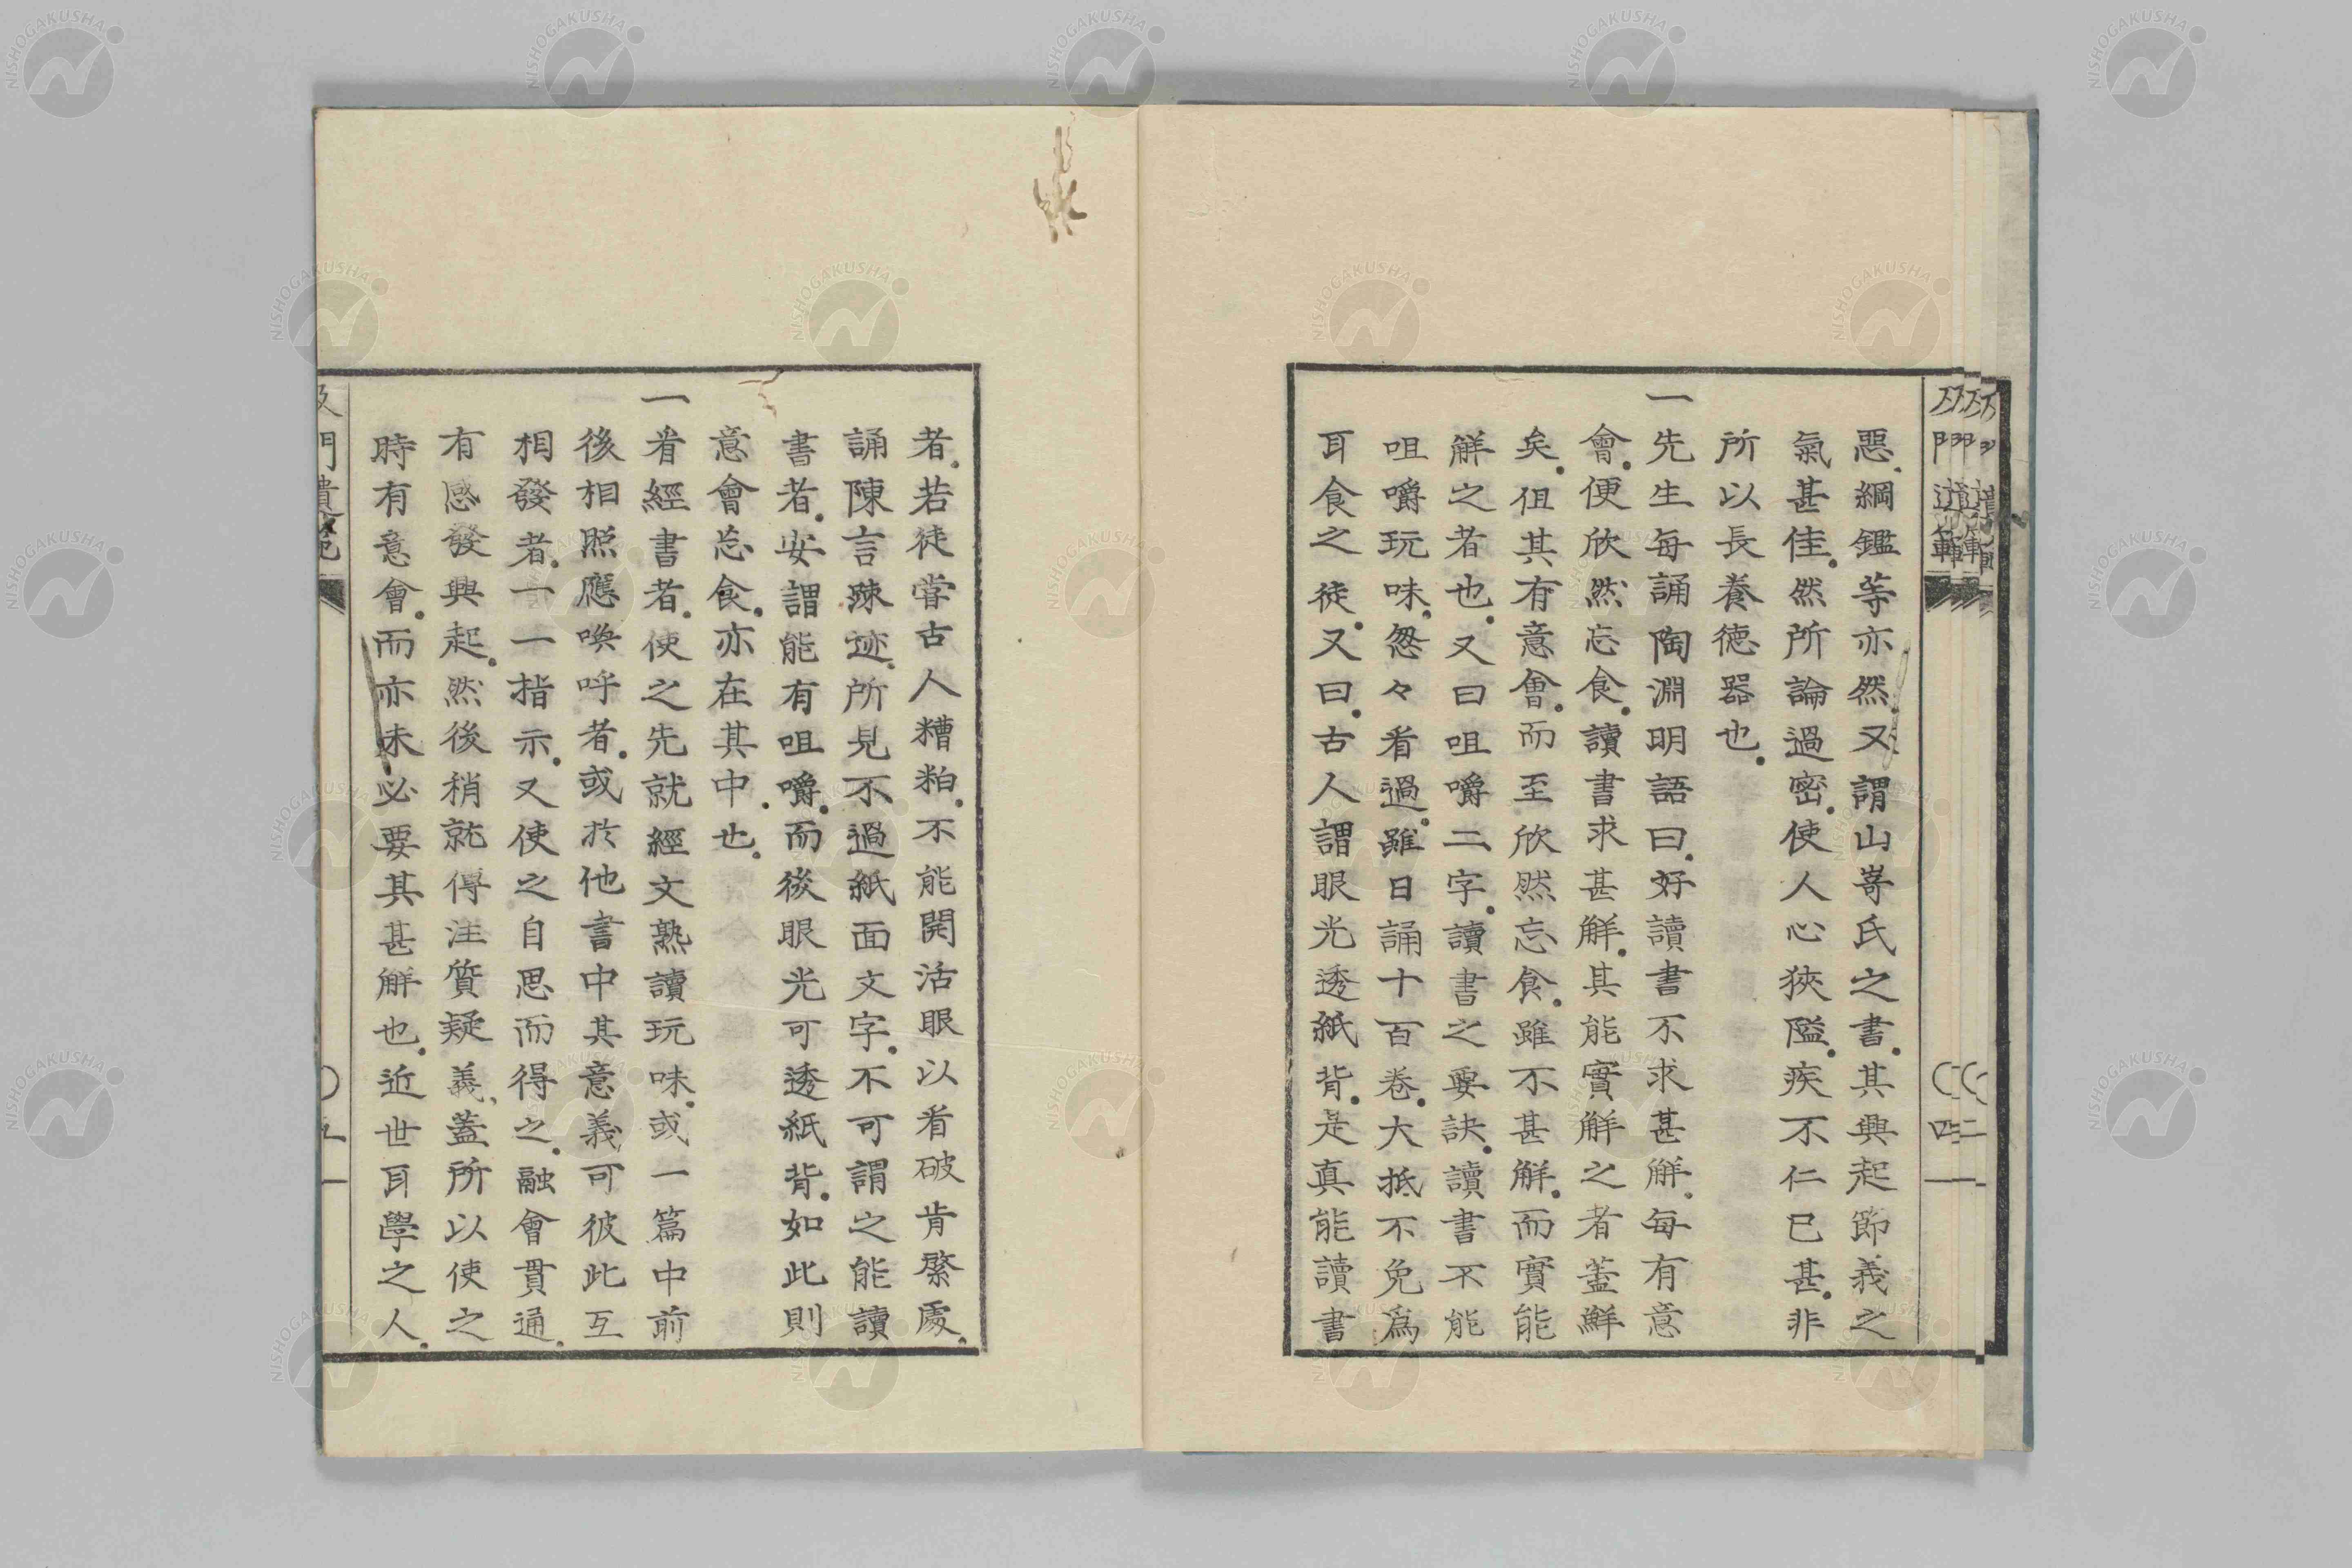 惡、綱鑑等亦然。又謂山嵜氏之書。其興起節義之
氣甚佳。然所論過密。使人心狹隘。疾不仁已甚。非
所以長養德器也。
一先生每誦陶淵明語曰。好讀書不求甚解。每有意
會。便欣然忘食。讀書求甚解。其能實解之者蓋鮮
矣。但其有意會。而至欣然忘食。雖不甚解。而實能
解之者也。又曰咀嚼二字。讀書之要訣。讀書不能
咀嚼玩味。怱々看過。雖日誦十百卷。大抵不免爲
耳食之徒。又曰。古人謂眼光透紙背。是真能讀書
者。若徒甞古人糟粕。不能開活眼以看破肯綮處。
誦陳言踈迹。所見不過紙面文字。不可謂之能讀
書者。安謂能有咀嚼。而後眼光可透紙背。如此則
意會忘食。亦在其中也。
一看經書者。使之先就經文熟讀玩味。或一篇中前
後相照應喚呼者。或於他書中其意義可彼此互
相發者。一一指示。又使之自思而得之。融會貫通。
有感發興起。然後稍就得注質疑義、蓋所以使之
時有意會。而亦未必要其甚解也。近世耳學之人。
及門遺範
五
四
NISHOGAKUSHA